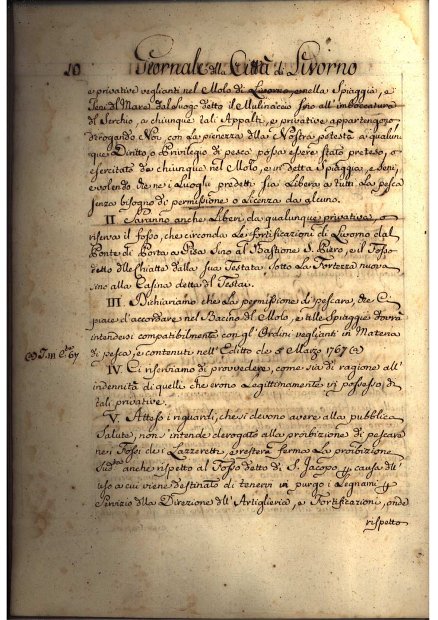 10 Giornale della Città di Livorno
e privative veglianti nel Molo di Livorno, e nella Spiaggia, e
Seni di Mare dal luogo detto il Mulinaccio fino all'imboccatura
del Serchio, a chiunque tali Appalti, e privative appartengono
derogando Noi, con la pienezza della Nostra potestà a qualun
que Diritto, o Privilegio di pesca possa essere stato preteso, o
esercitato da chiunque nel Molo, e in detta Spiaggia, e Seni,
e volendo che nei Luoghi predetti sia Libera a Tutti La pesca
senza bisogno di permissione o Licenza da alcuno.
II. Saranno anche Liberi da qualunque privativa, o
riserva il fosso, che circonda Le fortificazioni di Livorno dal
Ponte di Porta a Pisa sino al Bastione S. Piero, e il Fosso
detto delle Chiatte dalla sua Testata sotto La Fortezza nuova
sino alla Casina detta del Testai.
III. Dichiariamo che La permissione di pescare, che Ci
piace d'accordare nel Bacino del Molo, e nelle Spiagge dovrà
intendersi compatibilmente con gl'Ordini veglianti in Materia
di pesca, e contenuti nell'Editto de 5 Marzo 1767 (a)
IV. Ci riserviamo di provvedere, come sia di ragione all'
indennità di quelli che erono Legittimamente in possesso di
tali privative.
V. Attesi i riguardi, che si devono avere alla pubblica
Salute, non s'intende derogato alla proibizione di pescare
nei Fossi dei Lazzeretti, e resterà ferma La proibizione
anche rispetto al Fosso detto di S. Jacopo p causa dell'
uso a cui viene destinato di tenervi in purgo i Legnami p
servizio della Direzione dell'Artiglieria, e Fortificazioni, onde
rispetto